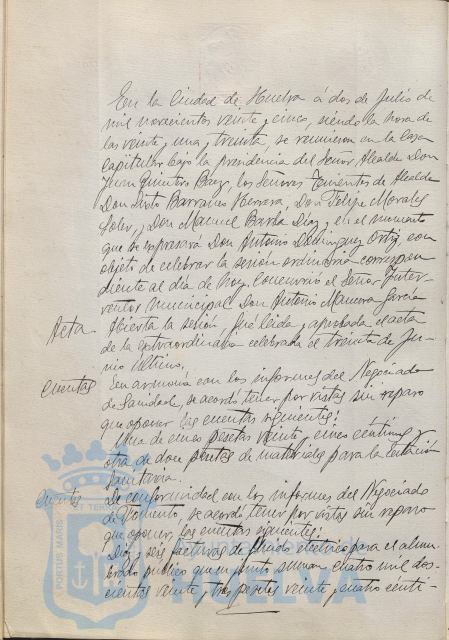 En la Ciudad de Huelva á dos de Julio de
mil novecientos veinte y cinco, siendo la hora de
las veinte y una y treinta, se reunieron en la Casa
Capitular bajo la presidencia del Señor Alcalde Don
Juan Quintero Baez, los Señores Tenientes de Alcalde
Don Sixto Barranco Herrera, Don Felipe Morales
Soler, y Don Manuel Barba Díaz, y en el momento
que se expresará Don Antonio Domínguez Ortiz, con
objeto de celebrar la sesión ordinaria correspon
diente al día de hoy. Concurrió el Señor Inter-
ventor Municipal Don Antonio García
Acta. Abierta la sesión, fué leida y aprobada el acta
de la extraordinaria celebrada el treinta de Ju-
nio último.
Cuentas En armonía con los informes del Negociado
de Sanidad, se acordó tener por vistas sin reparo
que oponer las cuentas siguientes:
Una de pesetas veinte y cinco céntimos y
otra de doce pesetas de materiales para la estación
Sanitaria.
Cuentas De conformidad con los informes del Negociado
de Fomento, se acordó tener por vistas sin reparo
que oponer, las cuentas siguientes:
Diez y seis facturas de fluido eléctrico para el alum-
brado público que en junto suman cuatro mil dos-
cientos veinte y tres pesetas veinte y cuatro cénti-
PORTUS MARIS
HUELVA